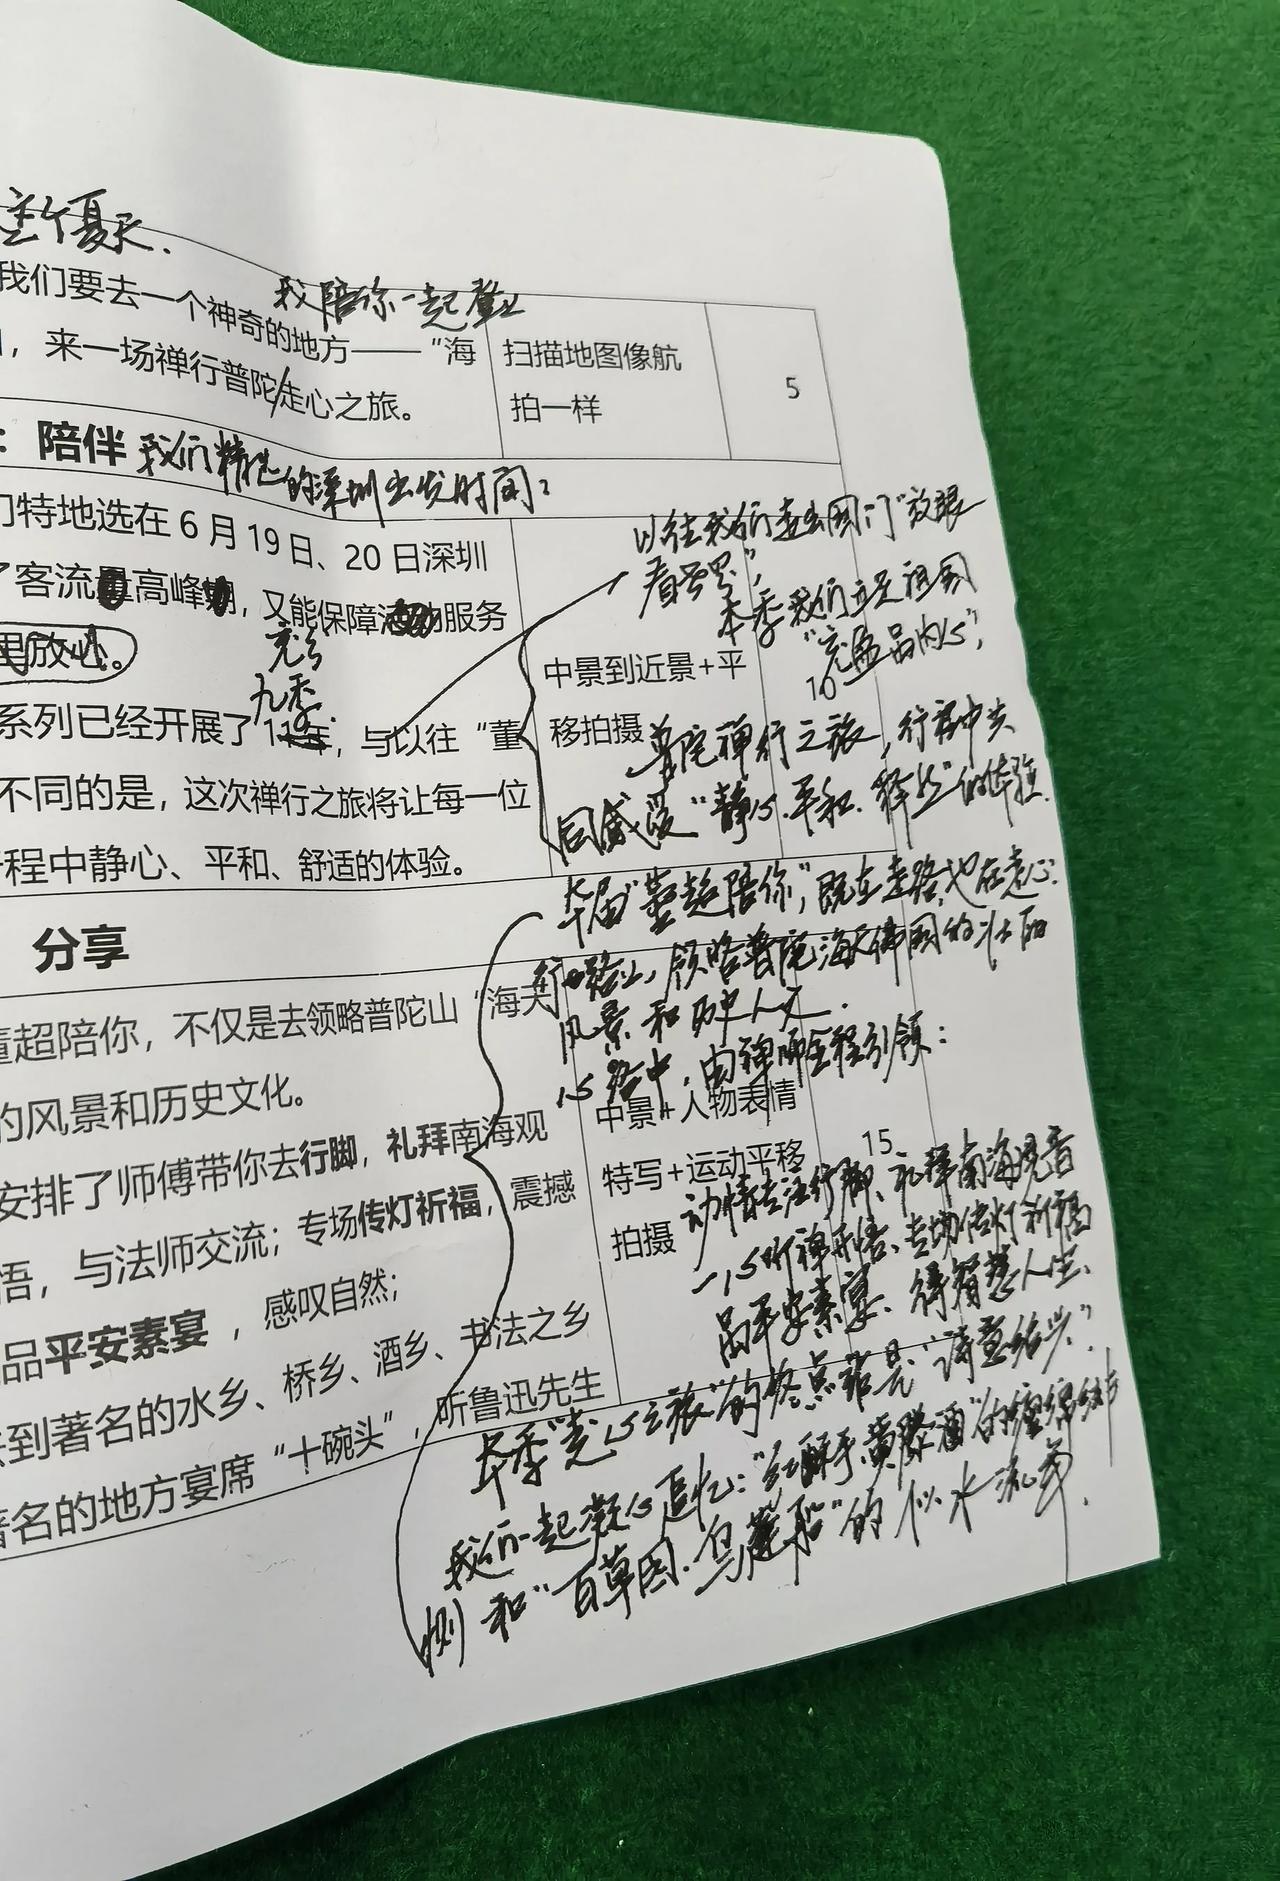 这个夏天.
我陪你一起登上
我们要去一个神奇的地方——“海
，来一场禅行普陀走心之旅。
扫描地图像航
拍一样
5
：陪伴 我们精选的深圳出发时间：
们特地选在 6 月 19 日、20 日深圳
了客流高峰，又能保障服务
充分
里放心。
九季.
系列已经开展了 11年，与以往“董
不同的是，这次禅行之旅将让每一位
行程中静心、平和、舒适的体验。
中景到近景+平
移拍摄
10
以往我们走出国门“放眼
看世界”，
本季我们立足祖国
“充盈品内心”，
普陀禅行之旅，行程中共
同感受“静心.平和.释然”的体验.
分享
董超陪你，不仅是去领略普陀山“海天
的风景和历史文化。
安排了师傅带你去行脚，礼拜南海观
悟，与法师交流；专场传灯祈福，震撼
品平安素宴，感叹自然；
来到著名的水乡、桥乡、酒乡、书法之乡
著名的地方宴席“十碗头”，听鲁迅先生
中景+人物表情
特写+运动平移
拍摄
15
本届“董超陪你”，既在走路，也在走心：
行路上，领略普陀海天佛国的壮丽
风景和历史人文.
心路中，由禅师全程引领：
动情去法行脚、礼拜南海观音
一心听禅开悟、专场传灯祈福
品平安素宴、得智慧人生、
本季“走心之旅”的终点站是“诗意绍兴”
我们一起凝心追忆：“红酥手、黄滕酒”的缠绵悱
恻和“百草园.乌蓬船”的似水流年.